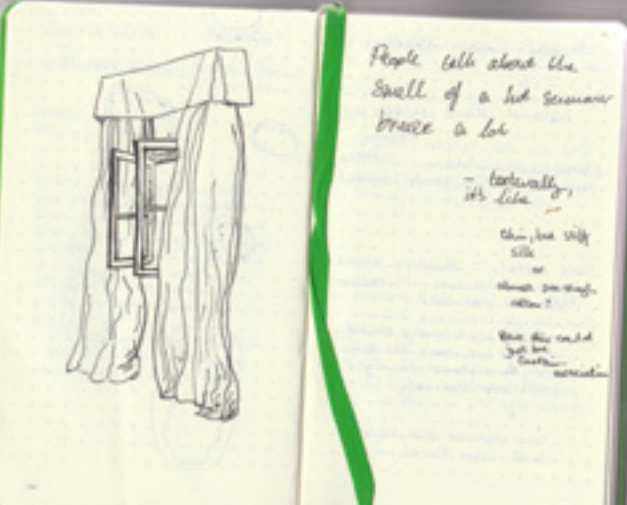 People talk about the
smell of a hot summer
breeze a lot
- texturally,
it's like
thin, but stiff
silk
or
almost
But this could
just be
curtain